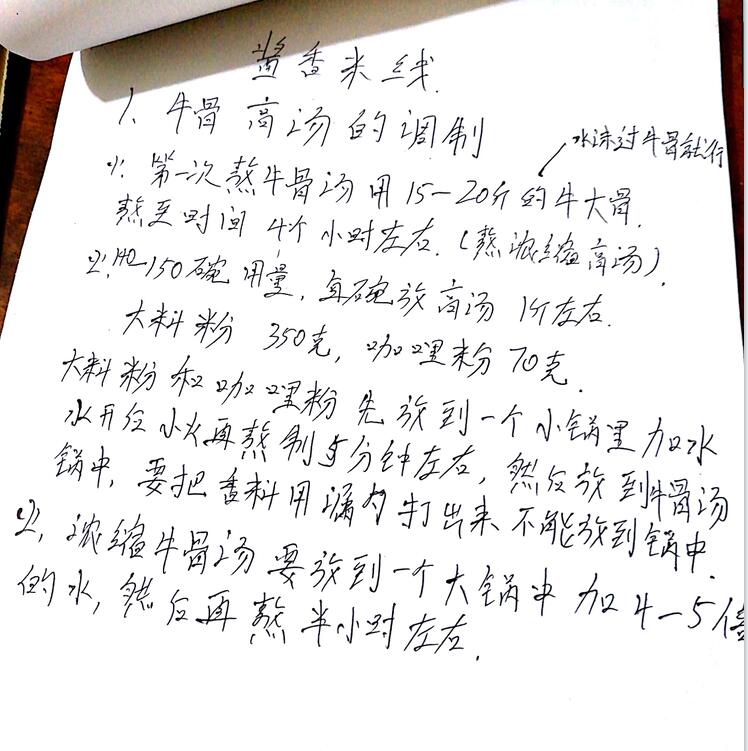 酱香米线
1、牛骨高汤的调制
水沫过牛骨就行
⑴: 第一次熬牛骨汤用15—20斤的牛大骨.
熬至时间4个小时左右.(熬浓缩高汤).
⑵: 140—150碗用量, 每碗放高汤1斤左右.
大料粉 350克, 咖喱粉70克.
大料粉和咖喱粉先放到一个小锅里加水
水开后小火再熬制5分钟左右, 然后放到牛骨汤
锅中, 要把香料用漏勺打出来不能放到锅中.
⑵, 浓缩牛骨汤要放到一个大锅中加4—5倍
的水, 然后再熬半小时左右.